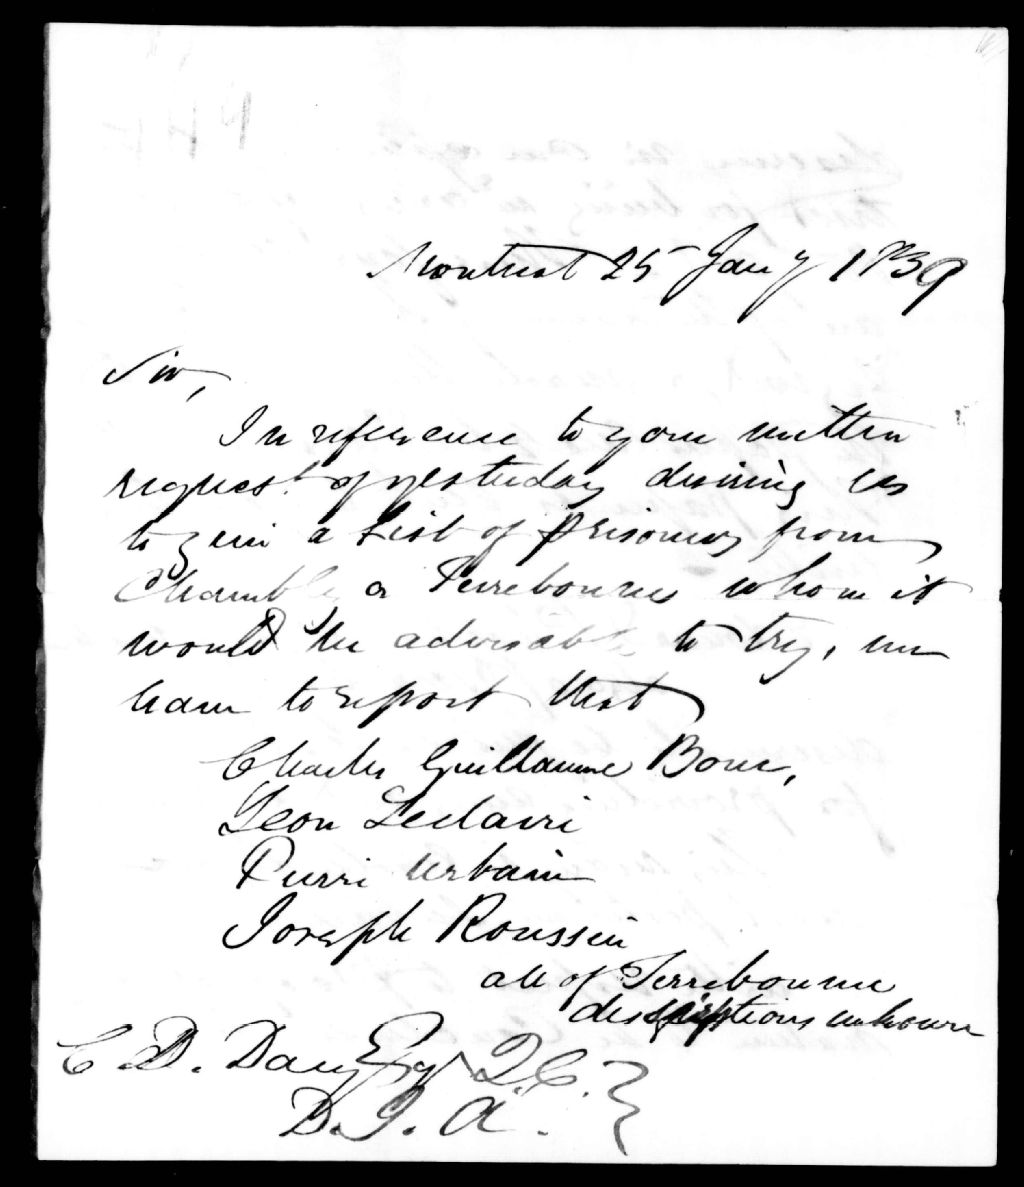 Montreal 25 Jany 1839
Sir,
In reference to your written
request of yesterday desiring us
to give a List of Prisoners from
Chambly or Terrebonne whom it
would be advisable to try, we
have to report that
Charles Guillaume Boue,
Leon Leclaire
Pierre Urbain
Joseph Roussin
all of Terrebonne
descriptions unknown
C. D. Day Esqr Q.C.
D. J. A.